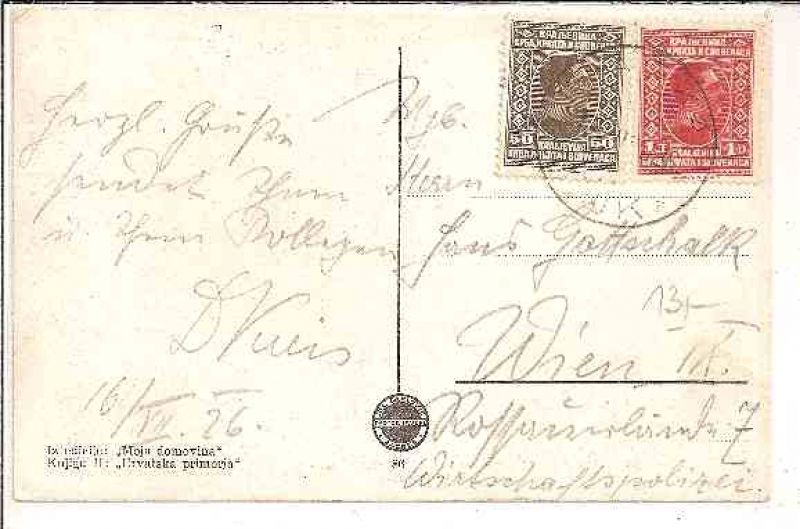 Herzl. Grüße
sendet Ihnen
u. Ihren Kollegen
16/VII. 26.
Iz edicije: „Moja domovina“
Knjiga II: „Hrvatska primorja“
86
КРАЉЕВИНА
СРБА, ХРВАТА И СЛОВЕНАЦА
50 50
KRALJEVINA
SRBA, HRVATA I SLOVENACA
КРАЉЕВИНА
СРБА, ХРВАТА И СЛОВЕНАЦА
1Д 1D
KRALJEVINA
SRBA, HRVATA I SLOVENACA
Herrn
Hans Gottschalk
Wien IX.
Rossauerlände 7
Wirtschaftspolizei.